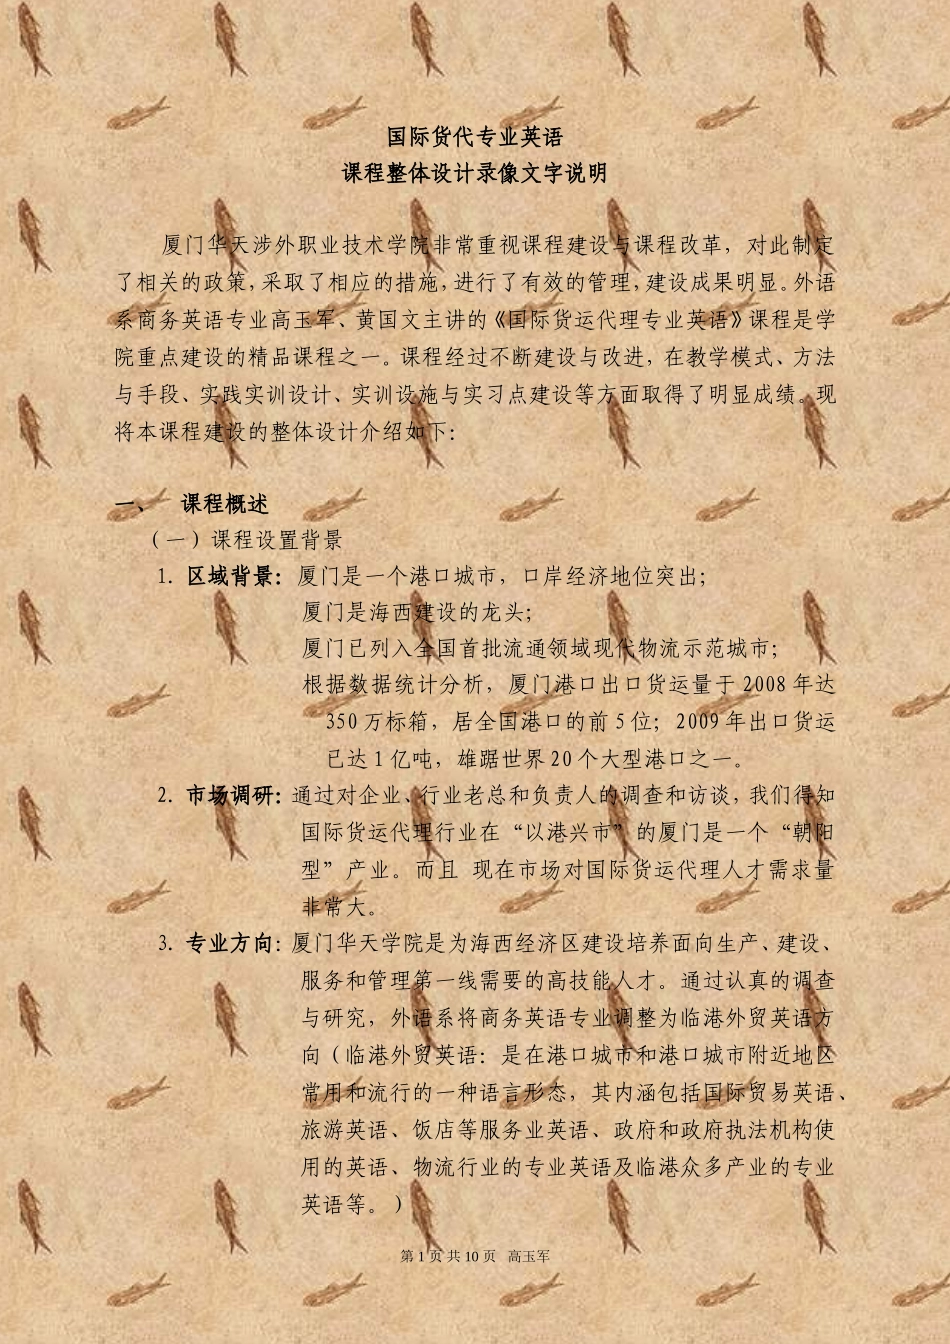 国际货代专业英语
课程整体设计录像文字说明
厦门华天涉外职业技术学院非常重视课程建设与课程改革，对此制定
了相关的政策，采取了相应的措施，进行了有效的管理，建设成果明显。外语
系商务英语专业高玉军、黄国文主讲的《国际货运代理专业英语》课程是学
院重点建设的精品课程之一。课程经过不断建设与改进，在教学模式、方法
与手段、实践实训设计、实训设施与实习点建设等方面取得了明显成绩。现
将本课程建设的整体设计介绍如下：
一、 课程概述
（一）课程设置背景
1. 区域背景：厦门是一个港口城市，口岸经济地位突出；
厦门是海西建设的龙头；
厦门已列入全国首批流通领域现代物流示范城市；
根据数据统计分析，厦门港口出口货运量于 2008 年达
350 万标箱，居全国港口的前 5 位；2009 年出口货运
已达 1 亿吨，雄踞世界 20 个大型港口之一。
2. 市场调研：通过对企业、行业老总和负责人的调查和访谈，我们得知
国际货运代理行业在“以港兴市”的厦门是一个“朝阳
型”产业。而且 现在市场对国际货运代理人才需求量
非常大。
3. 专业方向：厦门华天学院是为海西经济区建设培养面向生产、建设、
服务和管理第一线需要的高技能人才。通过认真的调查
与研究，外语系将商务英语专业调整为临港外贸英语方
向（临港外贸英语：是在港口城市和港口城市附近地区
常用和流行的一种语言形态，其内涵包括国际贸易英语、
旅游英语、饭店等服务业英语、政府和政府执法机构使
用的英语、物流行业的专业英语及临港众多产业的专业
英语等。）
第 1 页 共 10 页 高玉军